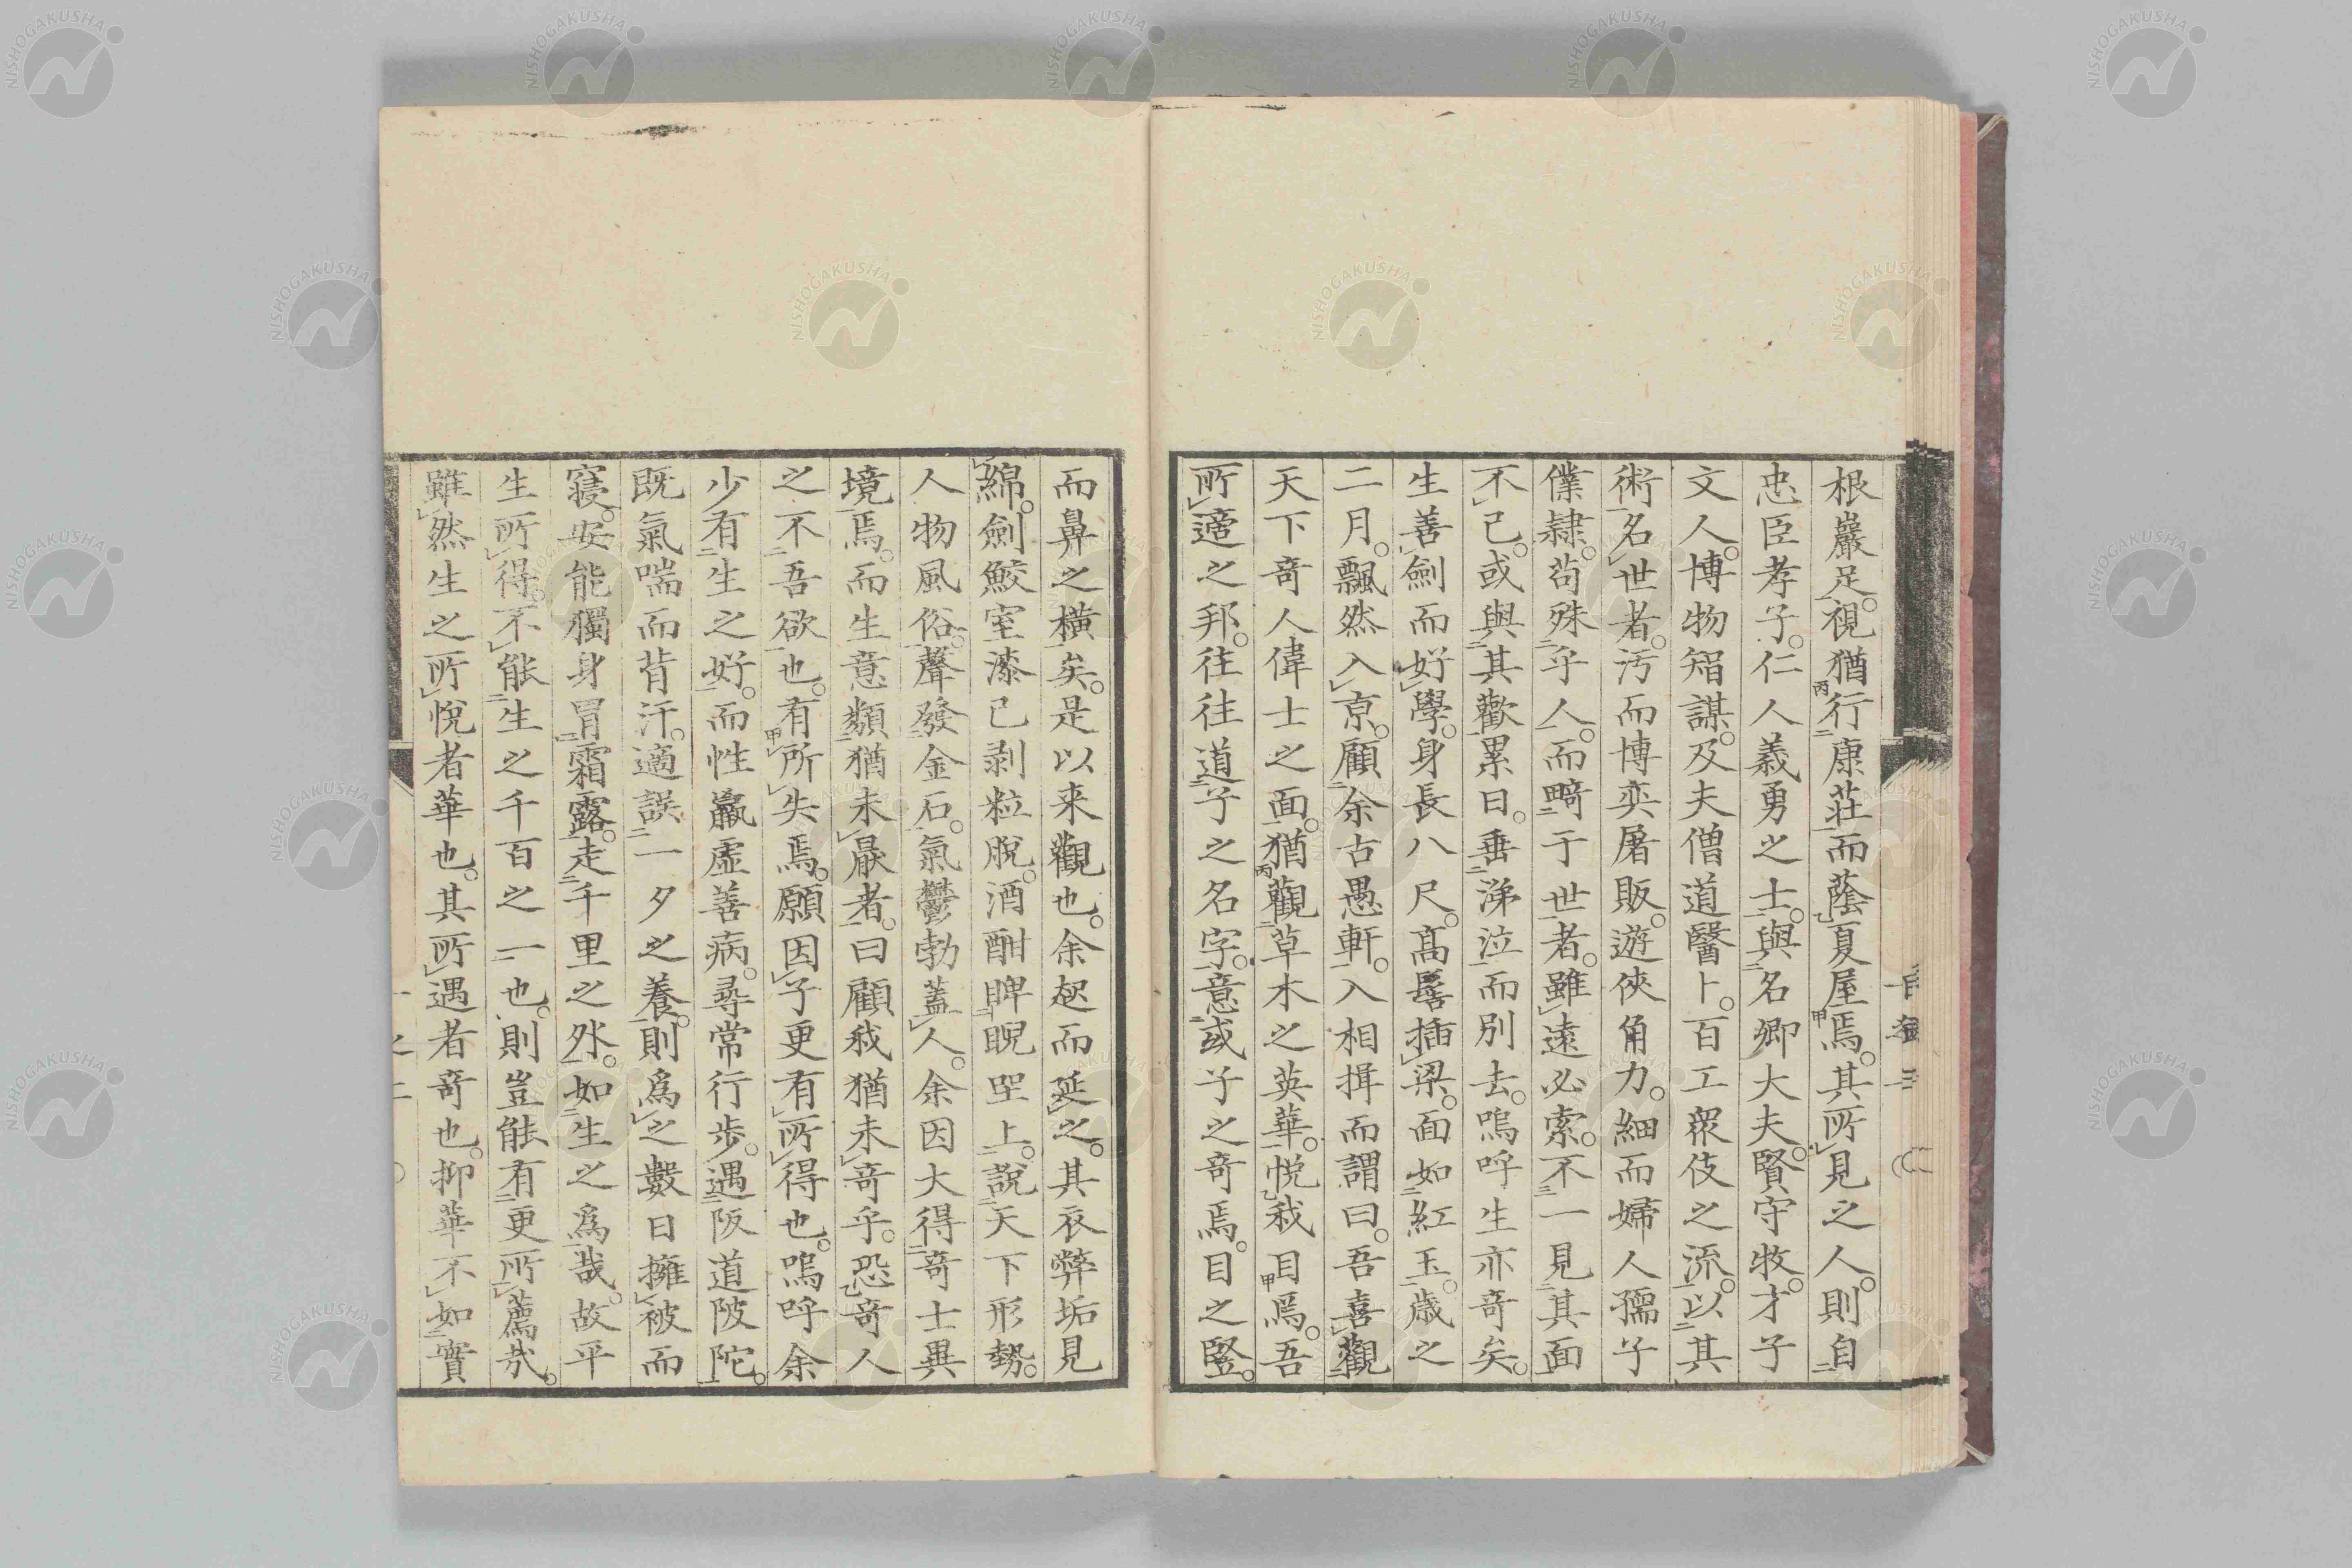 根巖足。視猶行康莊而蔭夏屋焉。其所見之人。則自
忠臣孝子。仁人義勇之士。與名卿大夫。賢守牧。才子
文人。博物智謀。及夫僧道醫卜。百工衆伎之流。以其
術名世者。汚而博奕屠販。遊俠角力。細而婦人孺子
僕隷。苟殊乎人。而畸于世者。雖遠必索。不一見其面
不已。或與其歡累日。垂涕泣而別去。嗚呼生亦奇矣。
生善劍而好學。身長八尺。高髻插梁。面如紅玉。歲之
二月。飄然入京。顧余古愚軒。入相揖而謂曰。吾喜觀
天下奇人偉士之面。猶觀草木之英華。悅我目焉。吾
所適之邦。往往道子之名字。意或子之奇焉。目之竪。
而鼻之橫矣。是以来觀也。余起而延之。其衣弊垢見
綿。劍鮫室漆已剥粒脫。酒酣睥睨坐上。說天下形勢。
人物風俗。聲發金石。氣鬱勃蓋人。余因大得奇士異
境焉。而生意類猶未厭者。曰顧我猶未奇乎。恐奇人
之不吾欲也。有所失焉。願因子更有所得也。嗚呼余
少有生之好。而性羸虛善病。尋常行步。遇阪道陂陀。
既氣喘而背汗。適誤一夕之養。則爲之數日擁被而
寢。安能獨身冒霜露。走千里之外。如生之爲哉。故平
生所得。不能生之千百之一也。則豈能有更所薦哉。
雖然生之所悅者華也。其所遇者奇也。抑華不如實